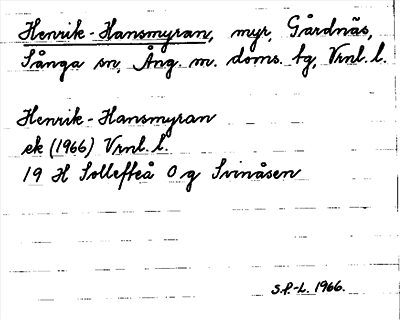 Henrik-Hansmyran, myr, Gårdnäs,
Sånga sn, Ång. m. doms. tg, Vrnl. l.
Henrik-Hansmyran
ek (1966) Vrnl. l.
19 H Sollefteå O g Svinåsen
S.P.-L. 1966.